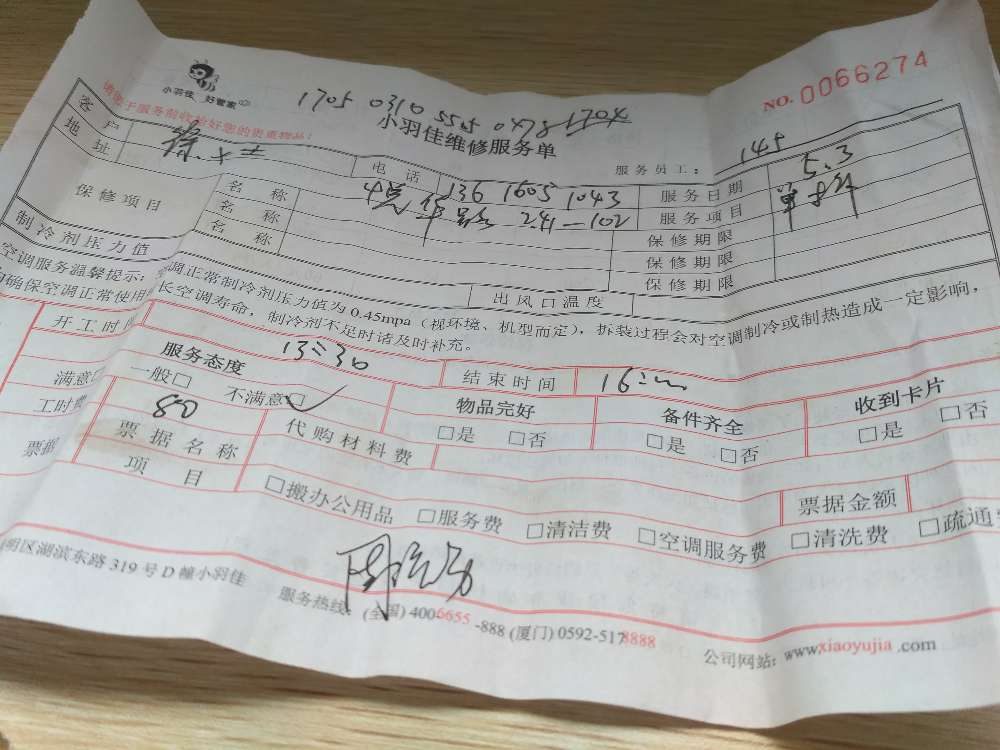 小羽佳 好管家
NO. 0066274
请您于服务前收拾好您的贵重物品!
1705 0310 5505 0478 1704
小羽佳维修服务单
服务员工: 145
客户
电话 136 1605 1043
服务日期 5.3
地址
241-102
服务项目
保修项目
名称
保修期限
名称
保修期限
名称
保修期限
制冷剂压力值
出风口温度
空调服务温馨提示:
调正常制冷剂压力值为0.45mpa(视环境、机型而定),拆装过程会对空调制冷或制热造成一定影响,
确保空调正常使用
长空调寿命,制冷剂不足时请及时补充。
开工时间 13:30
结束时间 16:
服务态度
物品完好
备件齐全
收到卡片
满意□ 一般□ 不满意□
□是 □否
□是 □否
□是 □否
工时费 80
代购材料费
票据
票据名称
票据金额
项目
□搬办公用品 □服务费 □清洁费 □空调服务费 □清洗费 □疏通
明区湖滨东路319号D幢小羽佳
服务热线:(全国)4006655-888(厦门)0592-5178888
公司网站:www.xiaoyujia.com